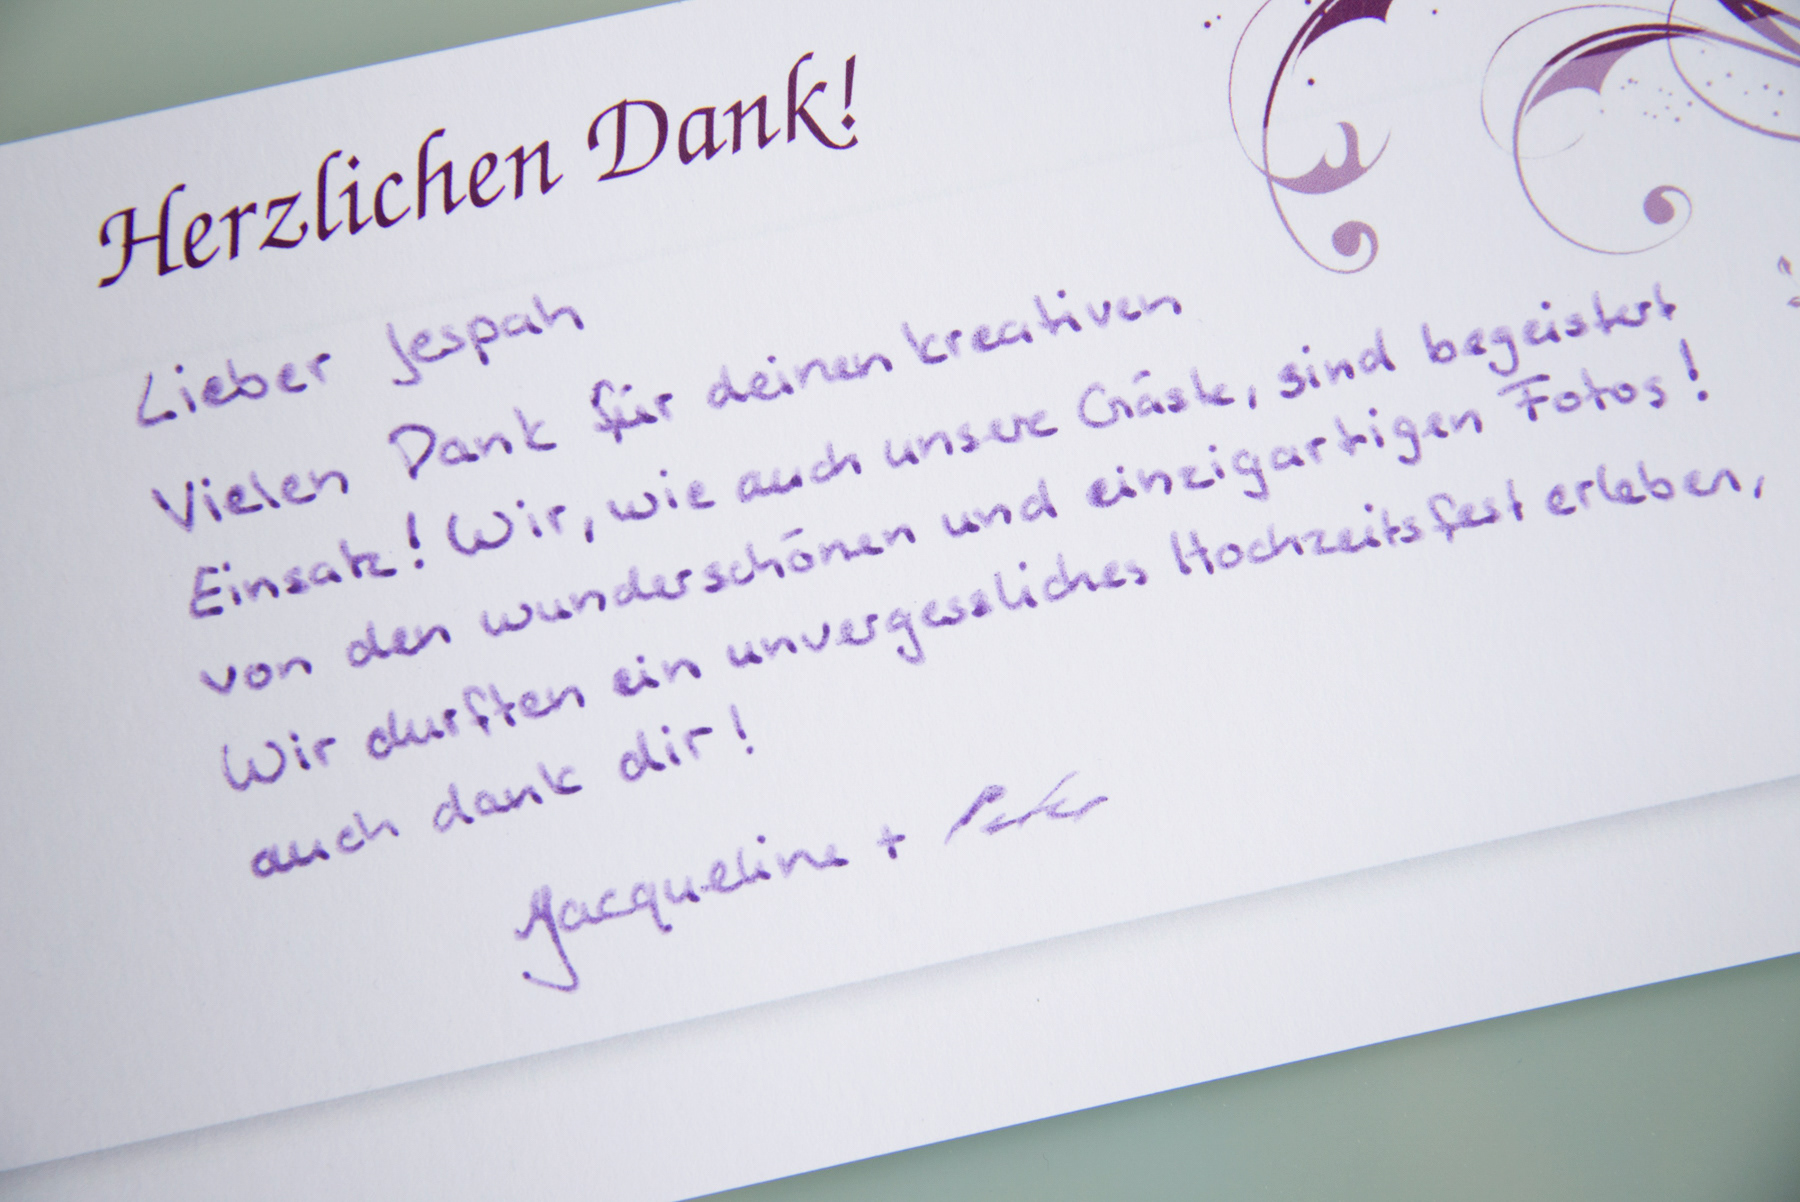 Herzlichen Dank!
Lieber Jespah
Vielen Dank für deinen kreativen
Einsatz! Wir, wie auch unsere Gäste, sind begeistert
von den wunderschönen und einzigartigen Fotos!
Wir durften ein unvergessliches Hochzeitsfest erleben,
auch dank dir!
Jacqueline + Peter